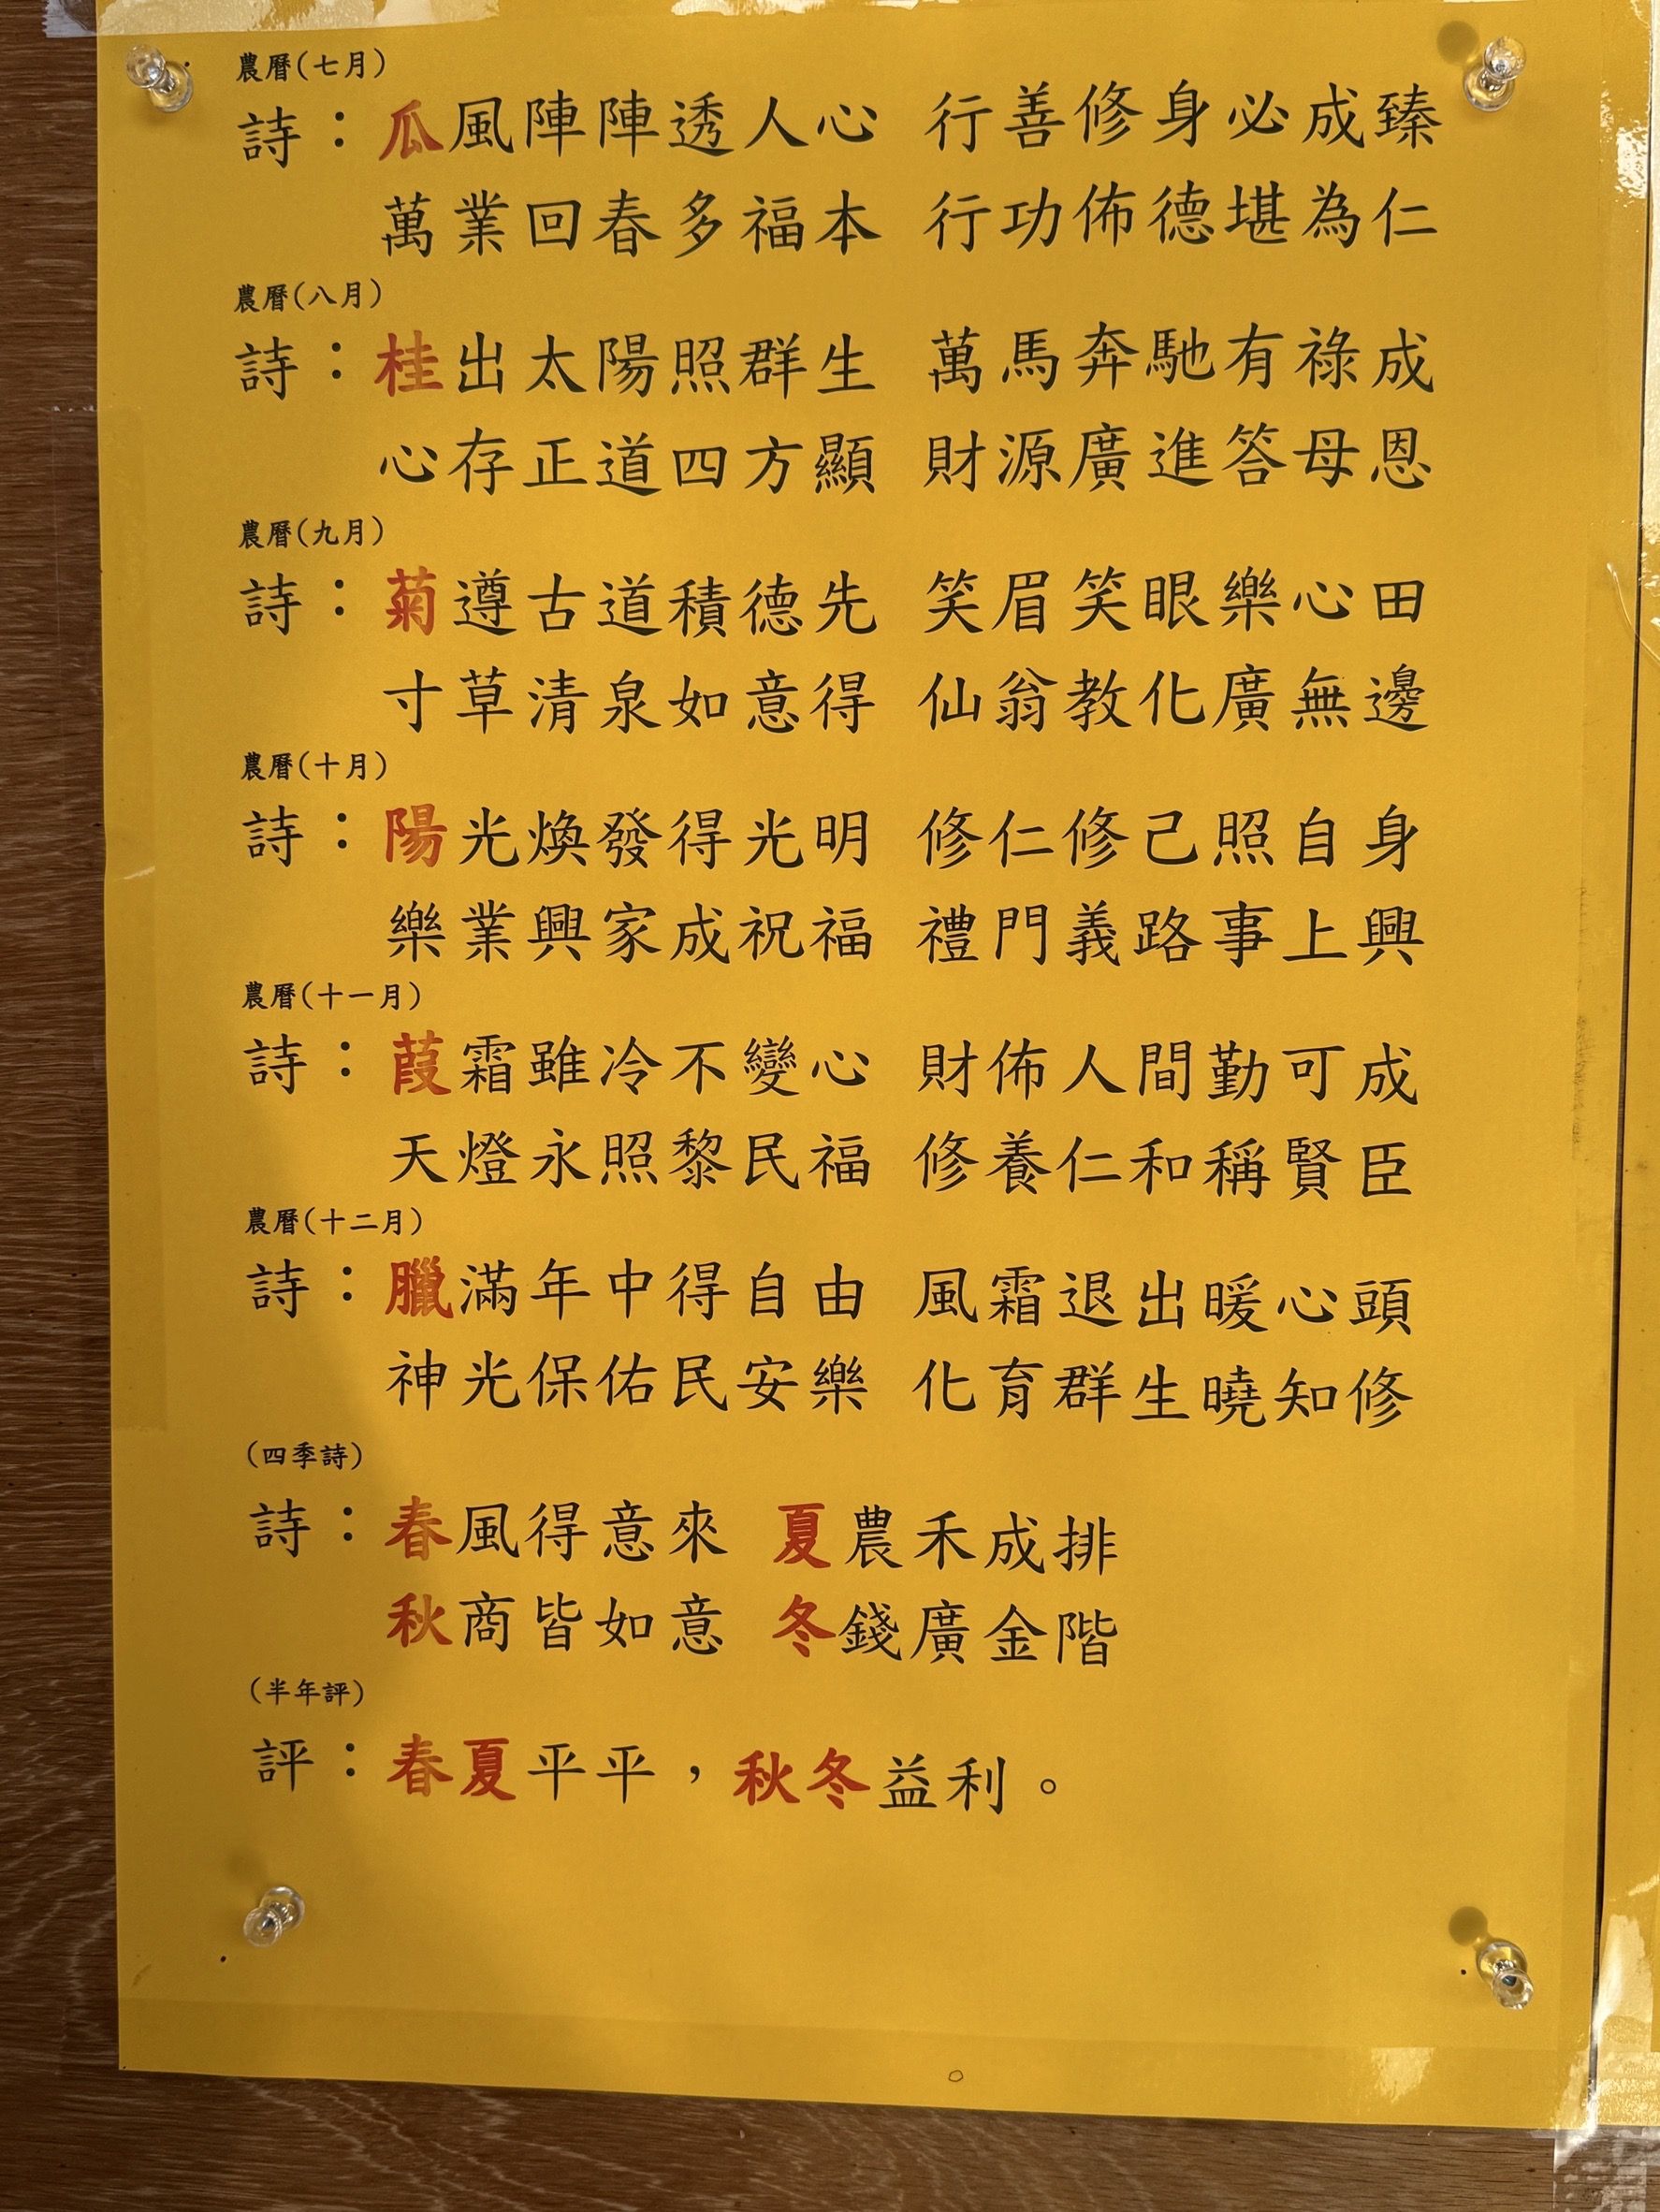 農曆(七月)
詩：瓜風陣陣透人心 行善修身必成臻
萬業回春多福本 行功佈德堪為仁
農曆(八月)
詩：桂出太陽照群生 萬馬奔馳有祿成
心存正道四方顯 財源廣進答母恩
農曆(九月)
詩：菊遵古道積德先 笑眉笑眼樂心田
寸草清泉如意得 仙翁教化廣無邊
農曆(十月)
詩：陽光煥發得光明 修仁修己照自身
樂業興家成祝福 禮門義路事上興
農曆(十一月)
詩：葭霜雖冷不變心 財佈人間勤可成
天燈永照黎民福 修養仁和稱賢臣
農曆(十二月)
詩：臘滿年中得自由 風霜退出暖心頭
神光保佑民安樂 化育群生曉知修
(四季詩)
詩：春風得意來 夏農禾成排
秋商皆如意 冬錢廣金階
(半年評)
評：春夏平平，秋冬益利。